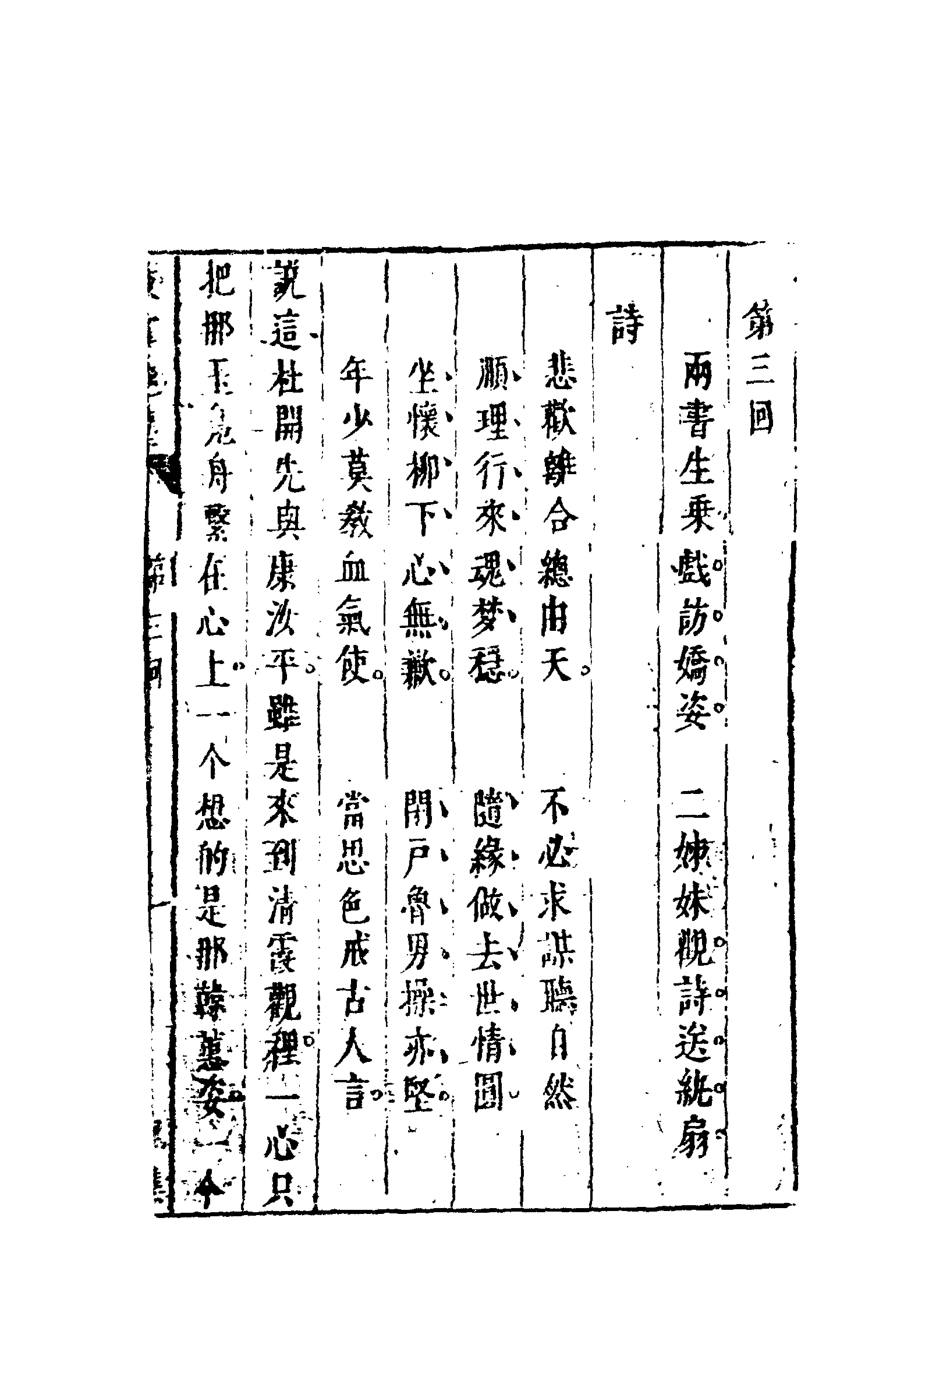 第三回
兩書生乗戲訪嬌姿　二姊妹觀詩送紈扇
詩
悲歡離合總由天。　不必求謀聽自然
順理行來魂梦穩。　隨緣做去世情圓。
坐懷柳下心無歉。　閉戸魯男操亦堅。
年少莫教血氣使。　當思色戒古人言。
說這杜開先與康汝平。雖是來到清霞觀裡。一心只
把那玉鳬舟繫在心上。一个想的是那韓蕙姿。一个
第三回